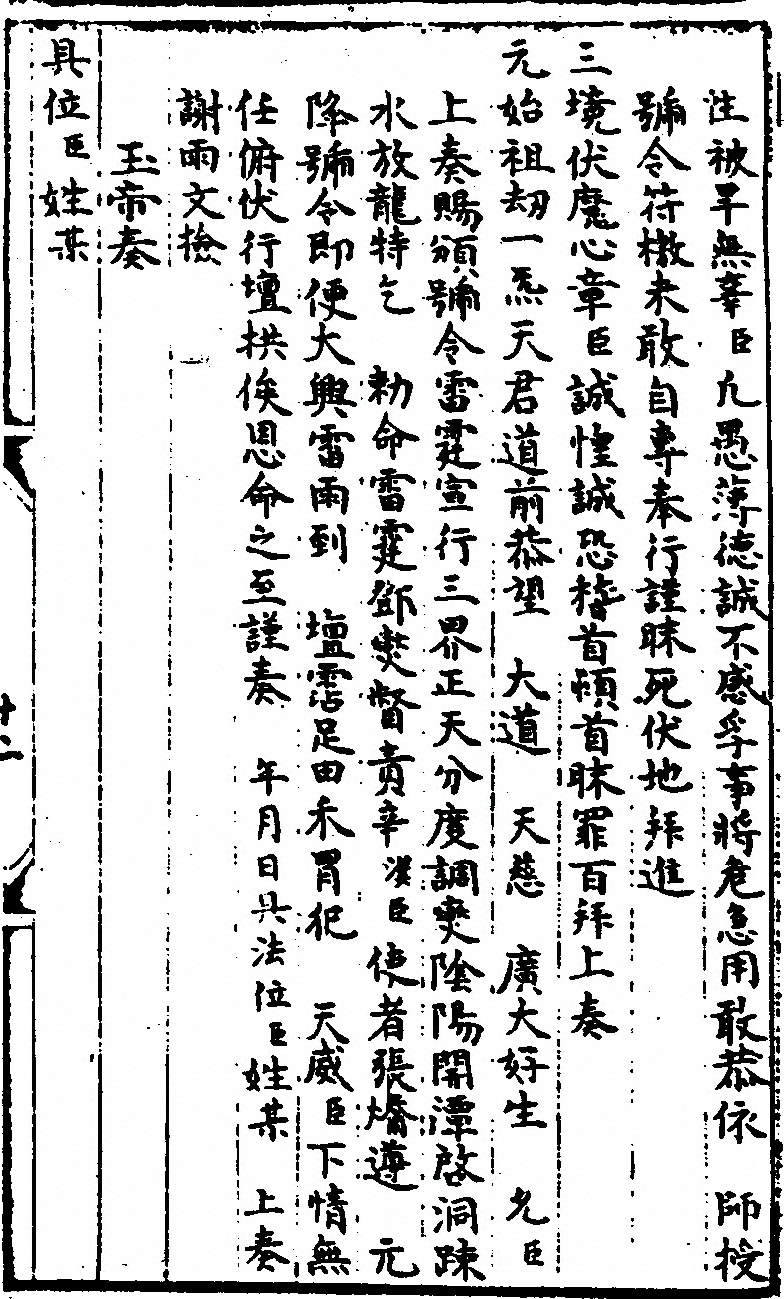 性被旱無辜臣凡愚薄德誠不感孚事將危急用敢恭依　師授
號令符檄未敢自專奉行謹昧死伏地拜進
三境伏魔心章臣誠惶誠恐稽首頓首昧罪百拜上奏
元始祖劫一炁天君道前恭望　大道　天慈　廣大好生　允臣
上奏賜頒號令雷霆宣行三界正天分度調爕隂陽開潭啓洞踈
水放龍特乞　勑命雷霆鄧爕督責辛漢臣使者張燏遵　元
降號令即便大興雷雨到　壇霑足田禾冒犯　天威臣下情無
任俯伏行壇拱俟恩命之至謹奏　年月日具法位臣姓某　上奏
謝雨文檢
玉帝奏
具位臣姓某
十二